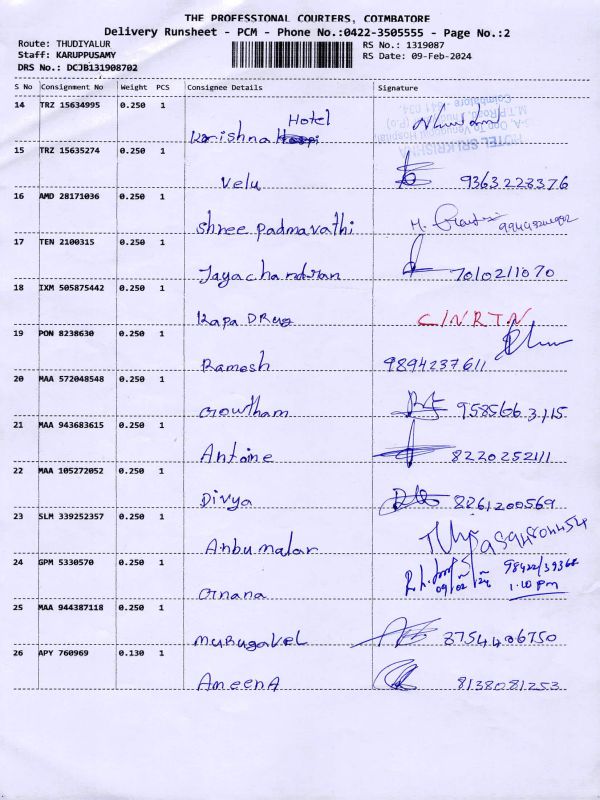 THE PROFESSIONAL COURIERS, COIMBATORE
Delivery Runsheet - PCM - Phone No.:0422-3505555 - Page No.:2
Route: THUDIYALUR
Staff: KARUPPUSAMY
DRS No.: DCJB131908702
RS No.: 1319087
RS Date: 09-Feb-2024
S No Consignment No Weight PCS Consignee Details Signature
14 TRZ 15634995 0.250 1
Hotel
Krishna
HOTEL SRI KRISHNA
15 TRZ 15635274 0.250 1
Velu 9363228376
16 AMD 28171036 0.250 1
Shree Padmavathi
17 TEN 2100315 0.250 1
Jayachandran 7010211070
18 IXM 505875442 0.250 1
Kapa Drug C/N RTN
19 PON 8238630 0.250 1
Ramesh 9894237611
20 MAA 572048548 0.250 1
Gowtham 9585663115
21 MAA 943683615 0.250 1
Antoine 8220252111
22 MAA 105272052 0.250 1
Divya 8261200569
23 SLM 339252357 0.250 1
Anbumalar
24 GPM 5330570 0.250 1
Gnana 09/02/24 1.10 pm
25 MAA 944387118 0.250 1
Murugavel 8754406750
26 APY 760969 0.130 1
Ameena 8138081253